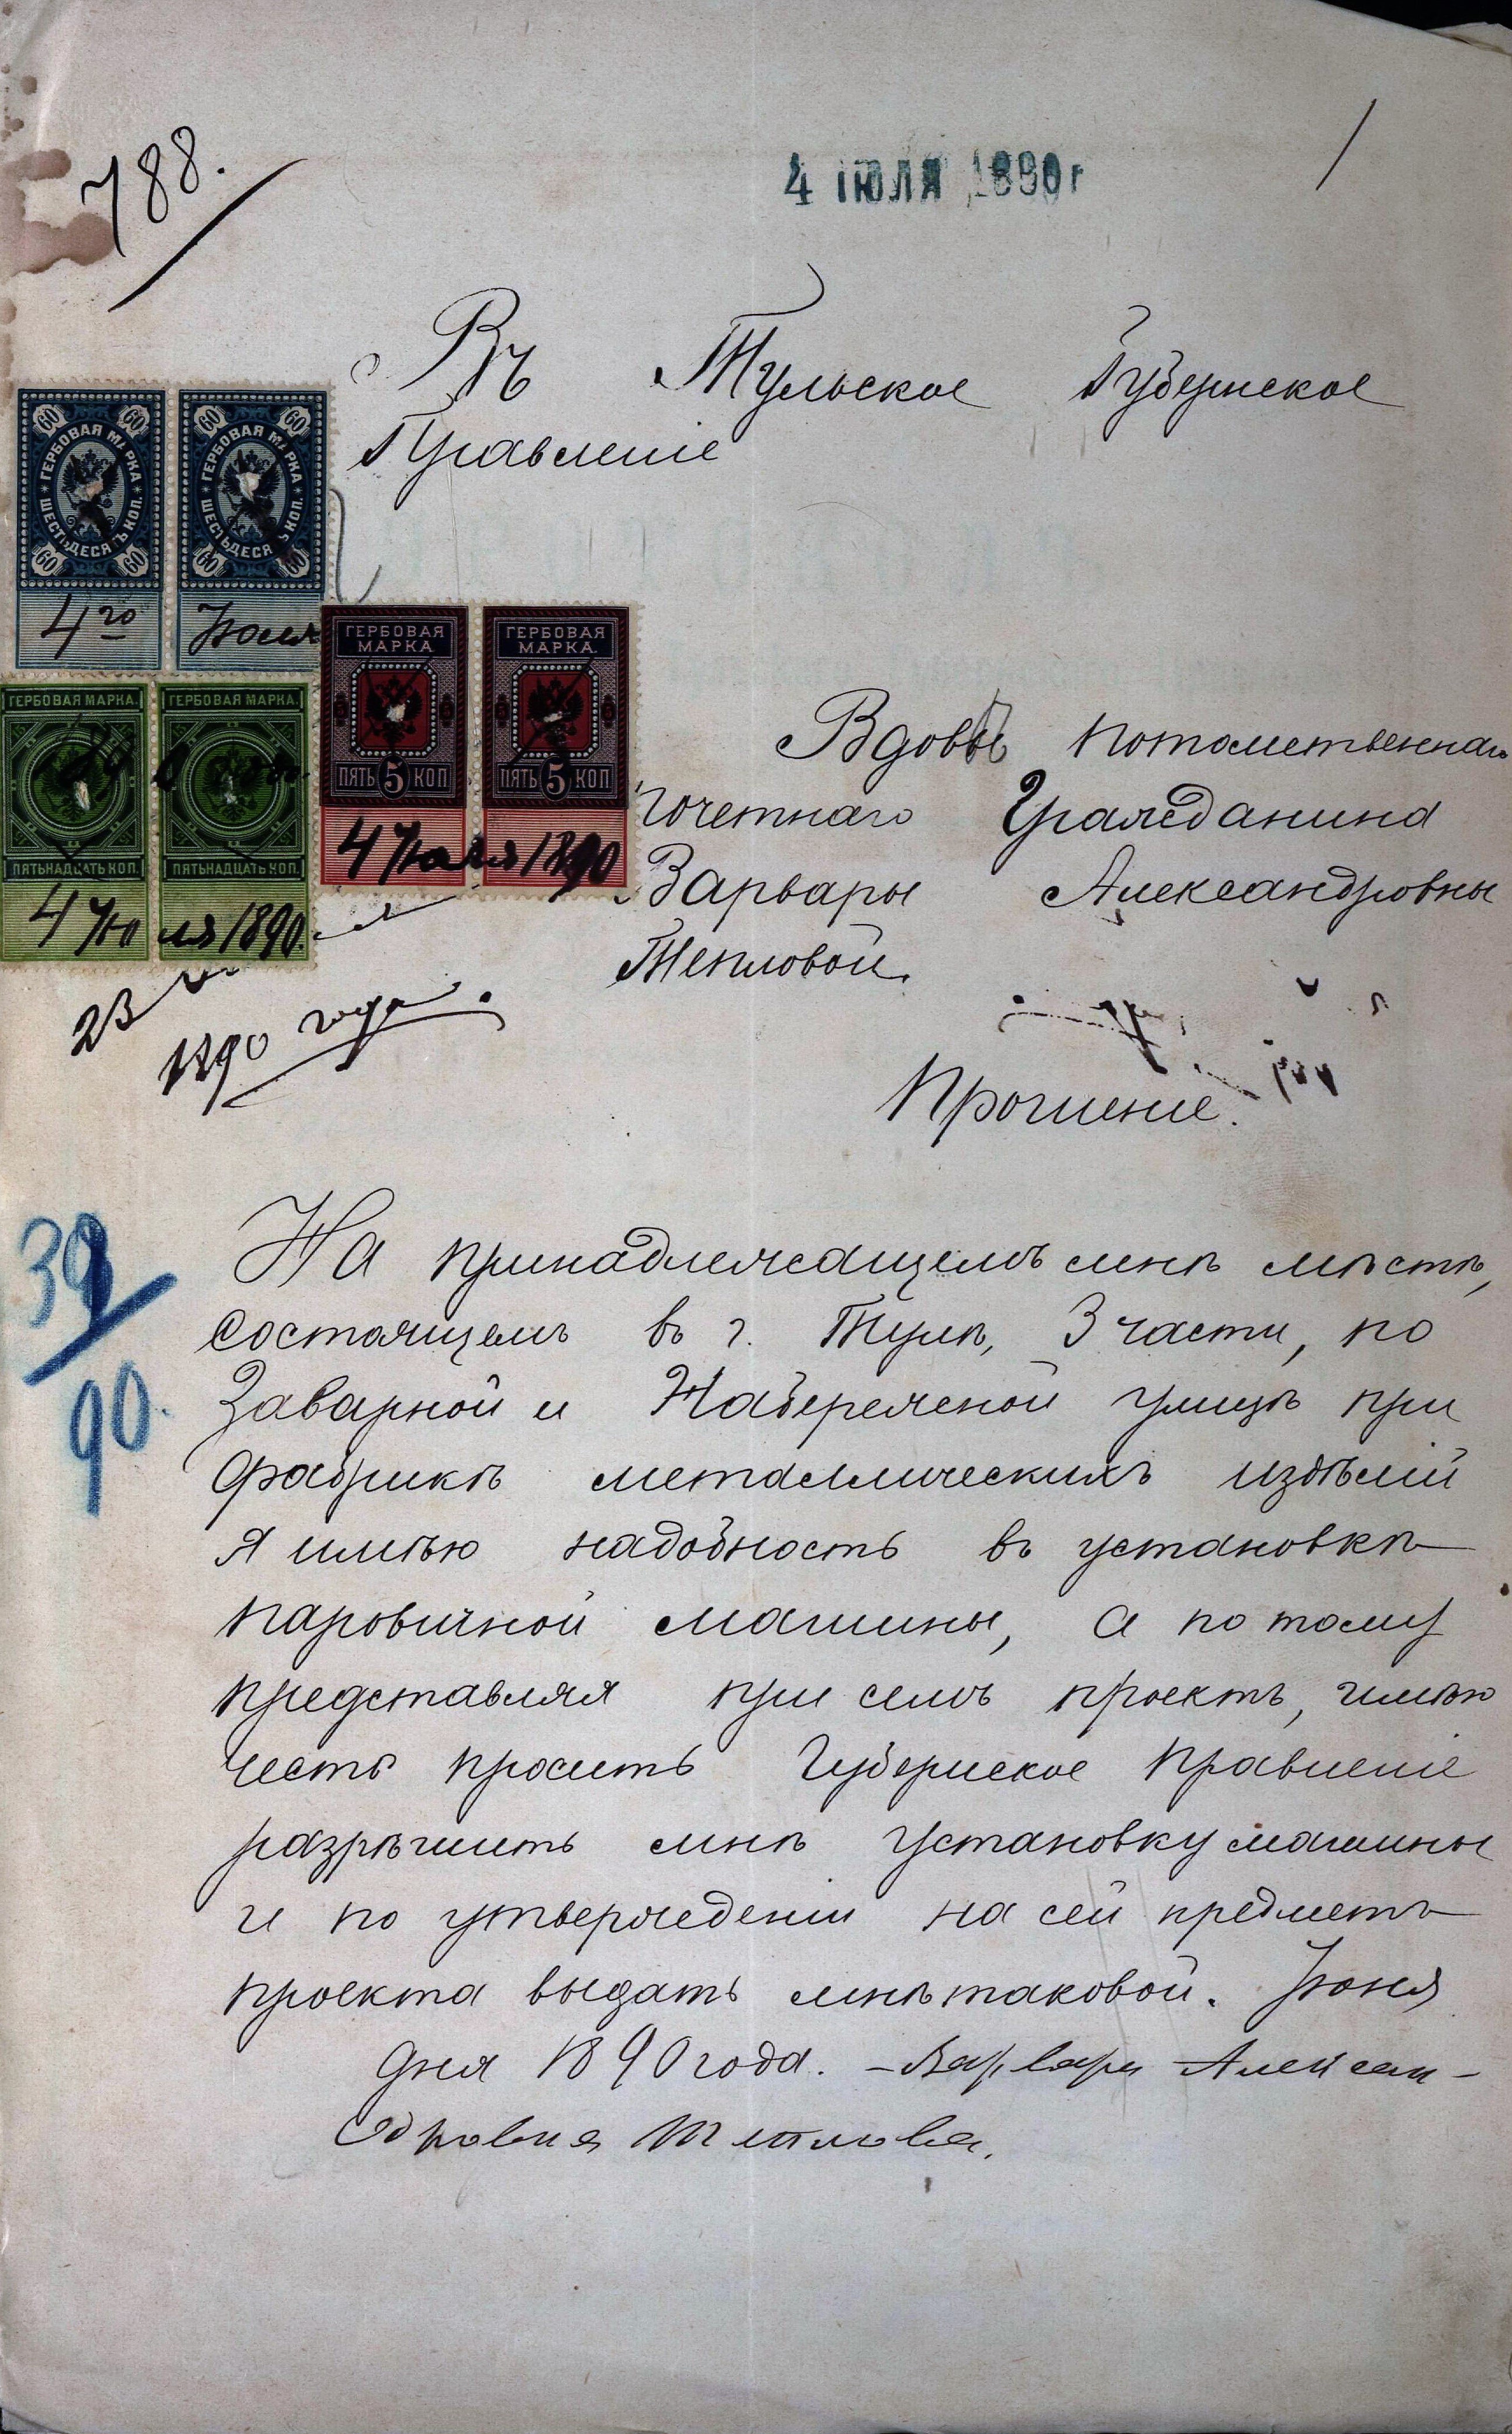 788.
4 ІЮЛЯ 1890 г
1
Въ Тульское Губернское
Правленіе
60 60
ГЕРБОВАЯ МАРКА
ШЕСТЬДЕСЯТЪ КОП.
60 60
60 60
ГЕРБОВАЯ МАРКА
ШЕСТЬДЕСЯТЪ КОП.
60 60
4го Іюля
ГЕРБОВАЯ МАРКА.
ПЯТЬ 5 КОП
ГЕРБОВАЯ МАРКА.
ПЯТЬ 5 КОП
4 Іюля 1890
ГЕРБОВАЯ МАРКА.
ПЯТЬНАДЦАТЬ КОП.
ГЕРБОВАЯ МАРКА.
ПЯТЬНАДЦАТЬ КОП.
4 Іюля 1890.
Вдовы потомственнаго
почетнаго Гражданина
Варвары Александровны
Тепловой.
23
1890 года.
Прошеніе.
39/90.
На принадлежащемъ мнѣ мѣстѣ,
состоящемъ въ г. Тулѣ, 3 части, по
Заварной и Набережной улицѣ при
фабрикѣ металлическихъ издѣлій
я имѣю надобность въ установкѣ
паровичной машины, а потому
представляя при семъ проектъ, имѣю
честь просить Губернское Правленіе
разрѣшить мнѣ установку машины
и по утвержденіи на сей предметъ
проекта выдать мнѣ таковой. Іюня
дня 1890 года. – Варвара Алексан-
дровна Теплова.